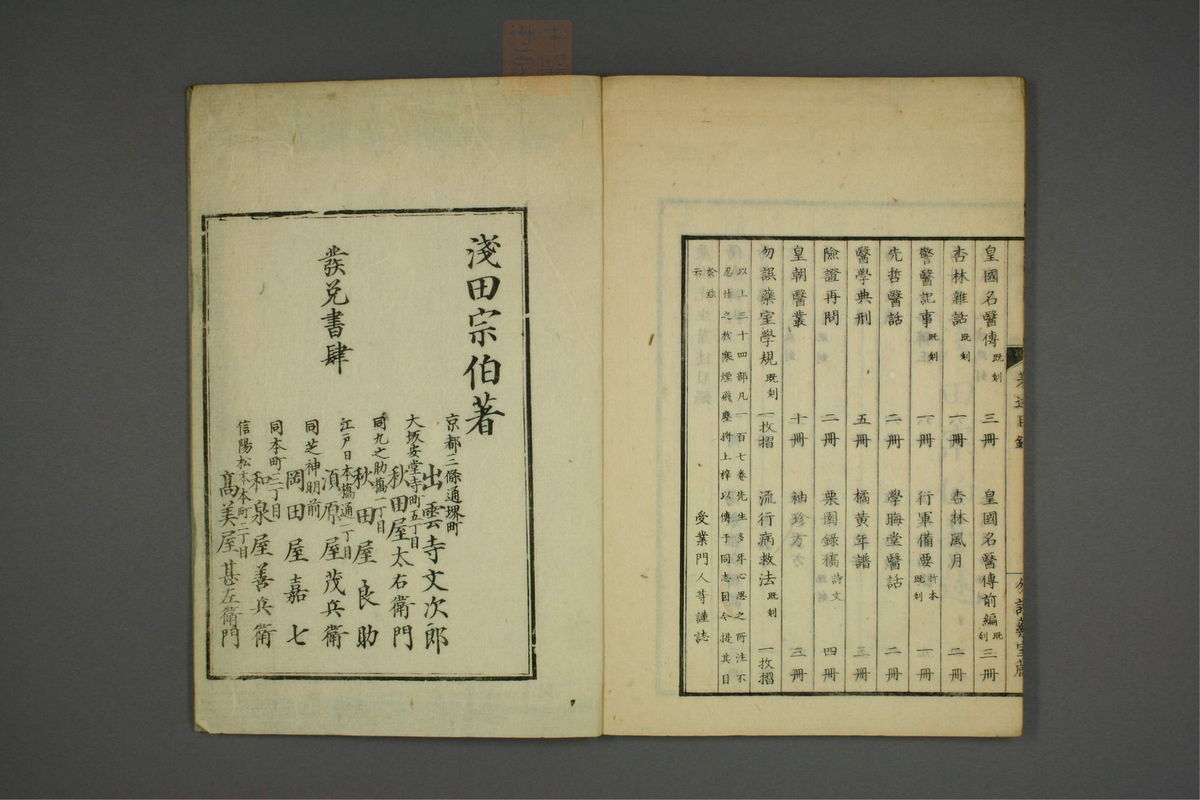 皇國名醫傳 既刻 三冊 皇國名醫傳前編 既刻 三冊
杏林雜話 既刻 一冊 杏林風月 二冊
警醫記事 既刻 一冊 行軍備要 折本 既刻 一冊
先哲醫話 二冊 學晦堂醫話 二冊
醫學典刑 五冊 橘黃年譜 三冊
險證再問 二冊 栗園錄稿 詩文 四冊
皇朝醫叢 十冊 袖珍方 三冊
勿誤藥室學規 既刻 一枚摺 流行病救法 既刻 一枚摺
以上三十四部凡一百七卷先生多年心思之所注不
忍付之於寒煙飛塵將上梓以傳于同志因令提其目
於茲
云
受業門人等謹誌
著述目錄
勿誤藥室
淺田宗伯著
發兌書肆
京都三條通堺町
出雲寺文次郎
大坂安堂寺町五丁目
秋田屋太右衛門
同九之助橋一丁目
秋田屋良助
江戶日本橋通二丁目
須原屋茂兵衛
同芝神明前
岡田屋嘉七
同本町三丁目
和泉屋善兵衛
信陽松本本町二丁目
髙美屋甚左衛門